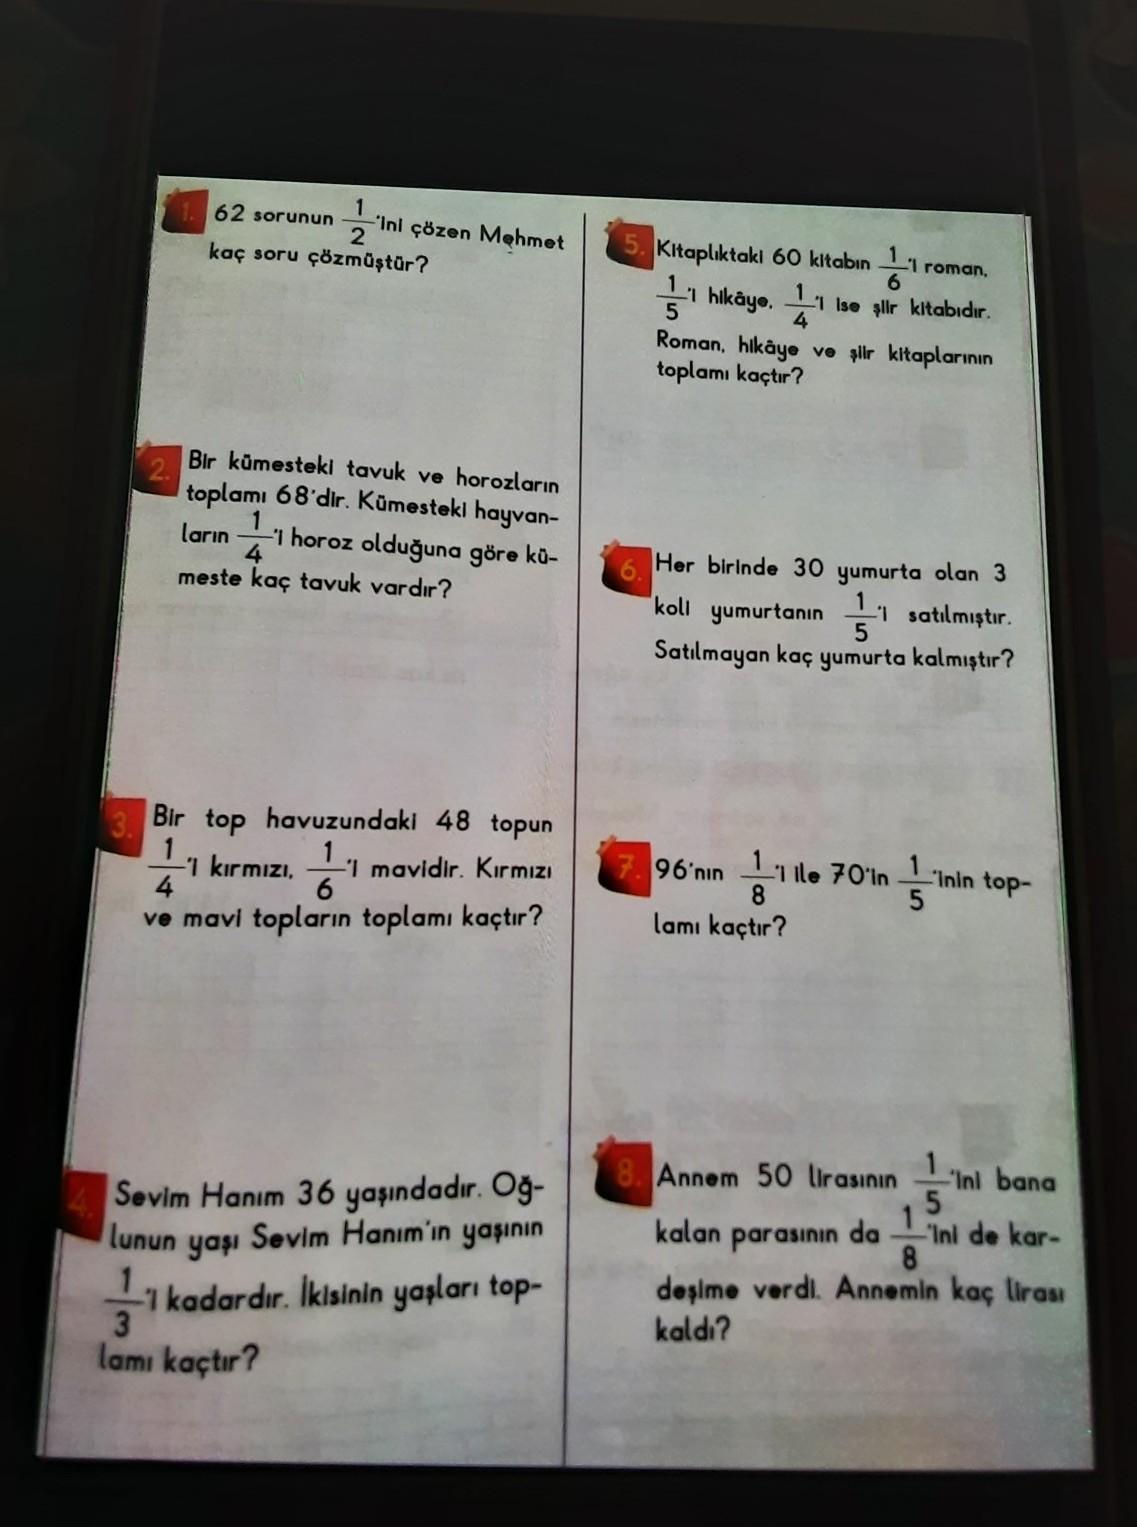 1. 62 sorunun 1/2'ini çözen Mehmet
kaç soru çözmüştür?
2. Bir kümesteki tavuk ve horozların
toplamı 68'dir. Kümesteki hayvan-
ların 1/4'i horoz olduğuna göre kü-
meste kaç tavuk vardır?
3. Bir top havuzundaki 48 topun
1/4'i kırmızı, 1/6'i mavidir. Kırmızı
ve mavi topların toplamı kaçtır?
4. Sevim Hanım 36 yaşındadır. Oğ-
lunun yaşı Sevim Hanım'ın yaşının
1/3'i kadardır. İkisinin yaşları top-
lamı kaçtır?
5. Kitaplıktaki 60 kitabın 1/6'i roman,
1/5'i hikâye, 1/4'i ise şiir kitabıdır.
Roman, hikâye ve şiir kitaplarının
toplamı kaçtır?
6. Her birinde 30 yumurta olan 3
koli yumurtanın 1/5'i satılmıştır.
Satılmayan kaç yumurta kalmıştır?
7. 96'nın 1/8'i ile 70'in 1/5'inin top-
lamı kaçtır?
8. Annem 50 lirasının 1/5'ini bana
kalan parasının da 1/8'ini de kar-
deşime verdi. Annemin kaç lirası
kaldı?